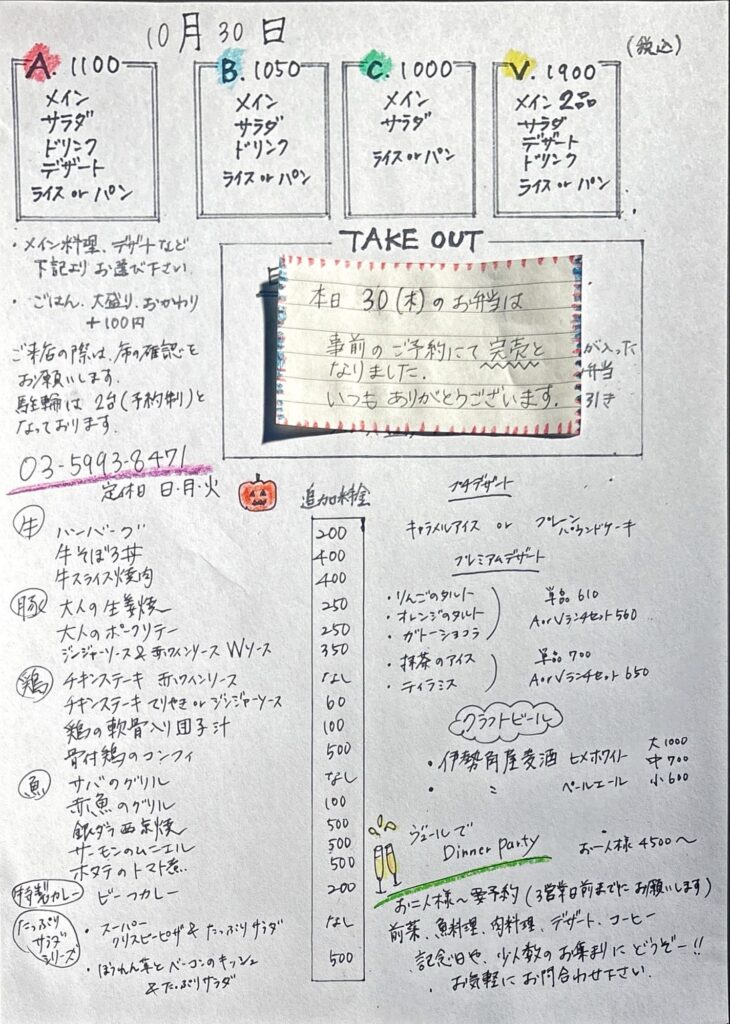 10月30日
(税込)
A. 1100
メイン
サラダ
ドリンク
デザート
ライス or パン
B. 1050
メイン
サラダ
ドリンク
ライス or パン
C. 1000
メイン
サラダ
ライス or パン
V. 1900
メイン 2品
サラダ
デザート
ドリンク
ライス or パン
・メイン料理、デザートなど
下記より お選び下さい
・ごはん、大盛り、おかわり
+100円
ご来店の際は、席の確認を
お願いします。
駐輪は 2台(予約制)と
なっております。
03-5993-8471
定休日 日・月・火
TAKE OUT
本日 30(木)のお弁当は
事前のご予約にて完売と
なりました.
いつも ありがとうございます.
が入った
弁当
引き
追加料金
牛
ハンバーグ 200
牛そぼろ丼 400
牛スライス焼肉 400
豚
大人の生姜焼 250
大人のポークソテー 250
ジンジャーソース & 赤ワインソース Wソース 350
鶏
チキンステーキ 赤ワインソース なし
チキンステーキ てりやき or ジンジャーソース 60
鶏の軟骨入り団子汁 100
骨付鶏のコンフィ 500
魚
サバのグリル なし
赤魚のグリル 100
銀ダラ西京焼 500
サーモンのムニエル 500
ホタテのトマト煮.. 500
特製カレー
ビーフカレー 200
たっぷりサラダシリーズ
・スーパー
クリスピーピザ & たっぷりサラダ なし
・ほうれん草とベーコンのキッシュ
& たっぷりサラダ 500
プチデザート
キャラメルアイス or プレーン
パウンドケーキ
プレミアムデザート
・りんごのタルト
・オレンジのタルト
・ガトーショコラ
単品 610
AorVランチセット 560
・抹茶のアイス
・ティラミス
単品 700
AorVランチセット 650
クラフトビール
・伊勢角屋麦酒 ヒメホワイト
・ 〃 ペールエール
大 1000
中 700
小 600
ヴェールで
Dinner Party
お一人様 4500〜
お二人様〜要予約(3営業日前までにお願いします)
前菜、魚料理、肉料理、デザート、コーヒー
記念日や、少人数のお集まりに どうぞー!!
お気軽に お問合わせ下さい.